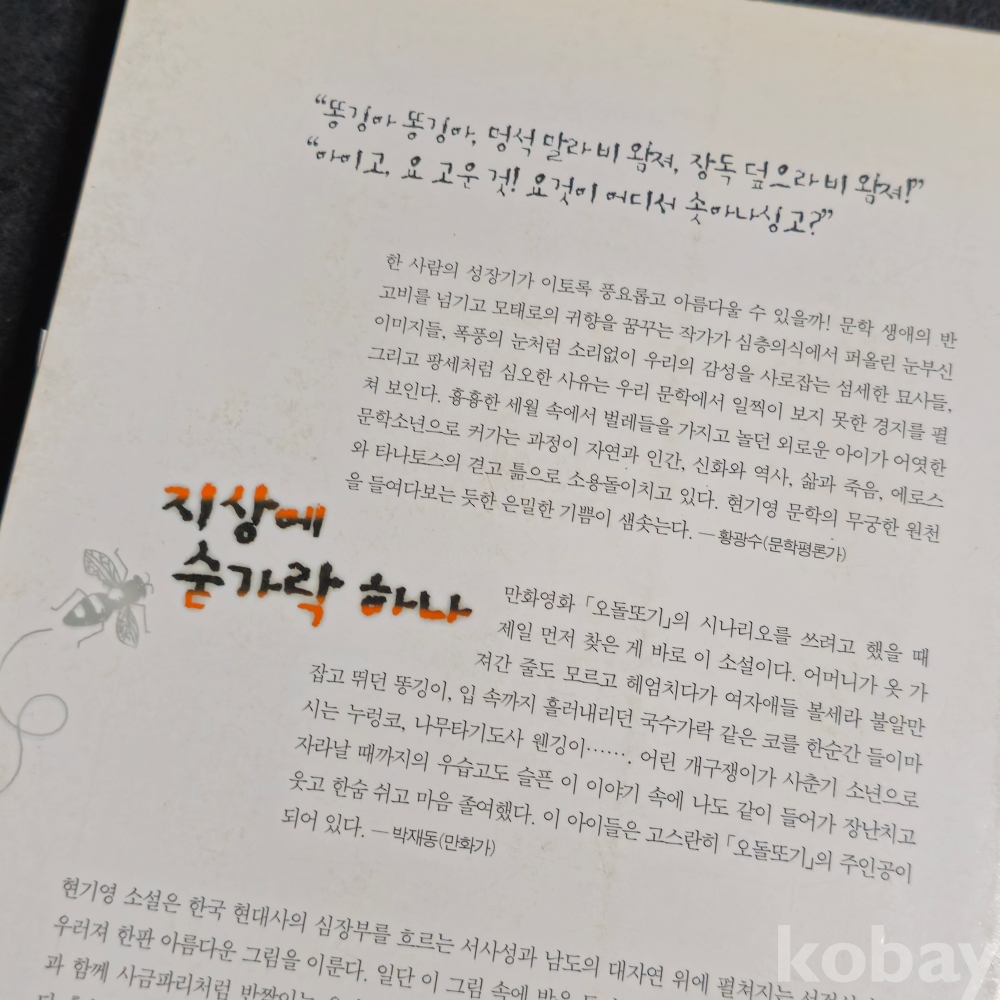 “똥깅아 똥깅아, 멍석 말라 비 왐져, 장독 덮으라 비 왐져!”
“아이고, 요 고운 것! 요것이 어디서 솟아나싱고?”
한 사람의 성장기가 이토록 풍요롭고 아름다울 수 있을까! 문학 생애의 반
고비를 넘기고 모태로의 귀향을 꿈꾸는 작가가 심층의식에서 퍼올린 눈부신
이미지들, 폭풍의 눈처럼 소리없이 우리의 감성을 사로잡는 섬세한 묘사들,
그리고 팡세처럼 심오한 사유는 우리 문학에서 일찍이 보지 못한 경지를 펼
쳐 보인다. 흉흉한 세월 속에서 벌레들을 가지고 놀던 외로운 아이가 어엿한
문학소년으로 커가는 과정이 자연과 인간, 신화와 역사, 삶과 죽음, 에로스
와 타나토스의 겯고 틂으로 소용돌이치고 있다. 현기영 문학의 무궁한 원천
을 들여다보는 듯한 은밀한 기쁨이 샘솟는다. ─ 황광수(문학평론가)
지상에
숟가락 하나
만화영화 「오돌또기」의 시나리오를 쓰려고 했을 때
제일 먼저 찾은 게 바로 이 소설이다. 어머니가 옷 가
져간 줄도 모르고 헤엄치다가 여자애들 볼세라 불알만
잡고 뛰던 똥깅이, 입 속까지 흘러내리던 국수가락 같은 코를 한순간 들이마
시는 누렁코, 나무타기도사 웬깅이……. 어린 개구쟁이가 사춘기 소년으로
자라날 때까지의 우습고도 슬픈 이 이야기 속에 나도 같이 들어가 장난치고
웃고 한숨 쉬고 마음 졸여했다. 이 아이들은 고스란히 「오돌또기」의 주인공이
되어 있다. ─ 박재동(만화가)
현기영 소설은 한국 현대사의 심장부를 흐르는 서사성과 남도의 대자연 위에 펼쳐지는
우러져 한판 아름다운 그림을 이룬다. 일단 이 그림 속에 발을
과 함께 사금파리처럼 반짝이는
kobay